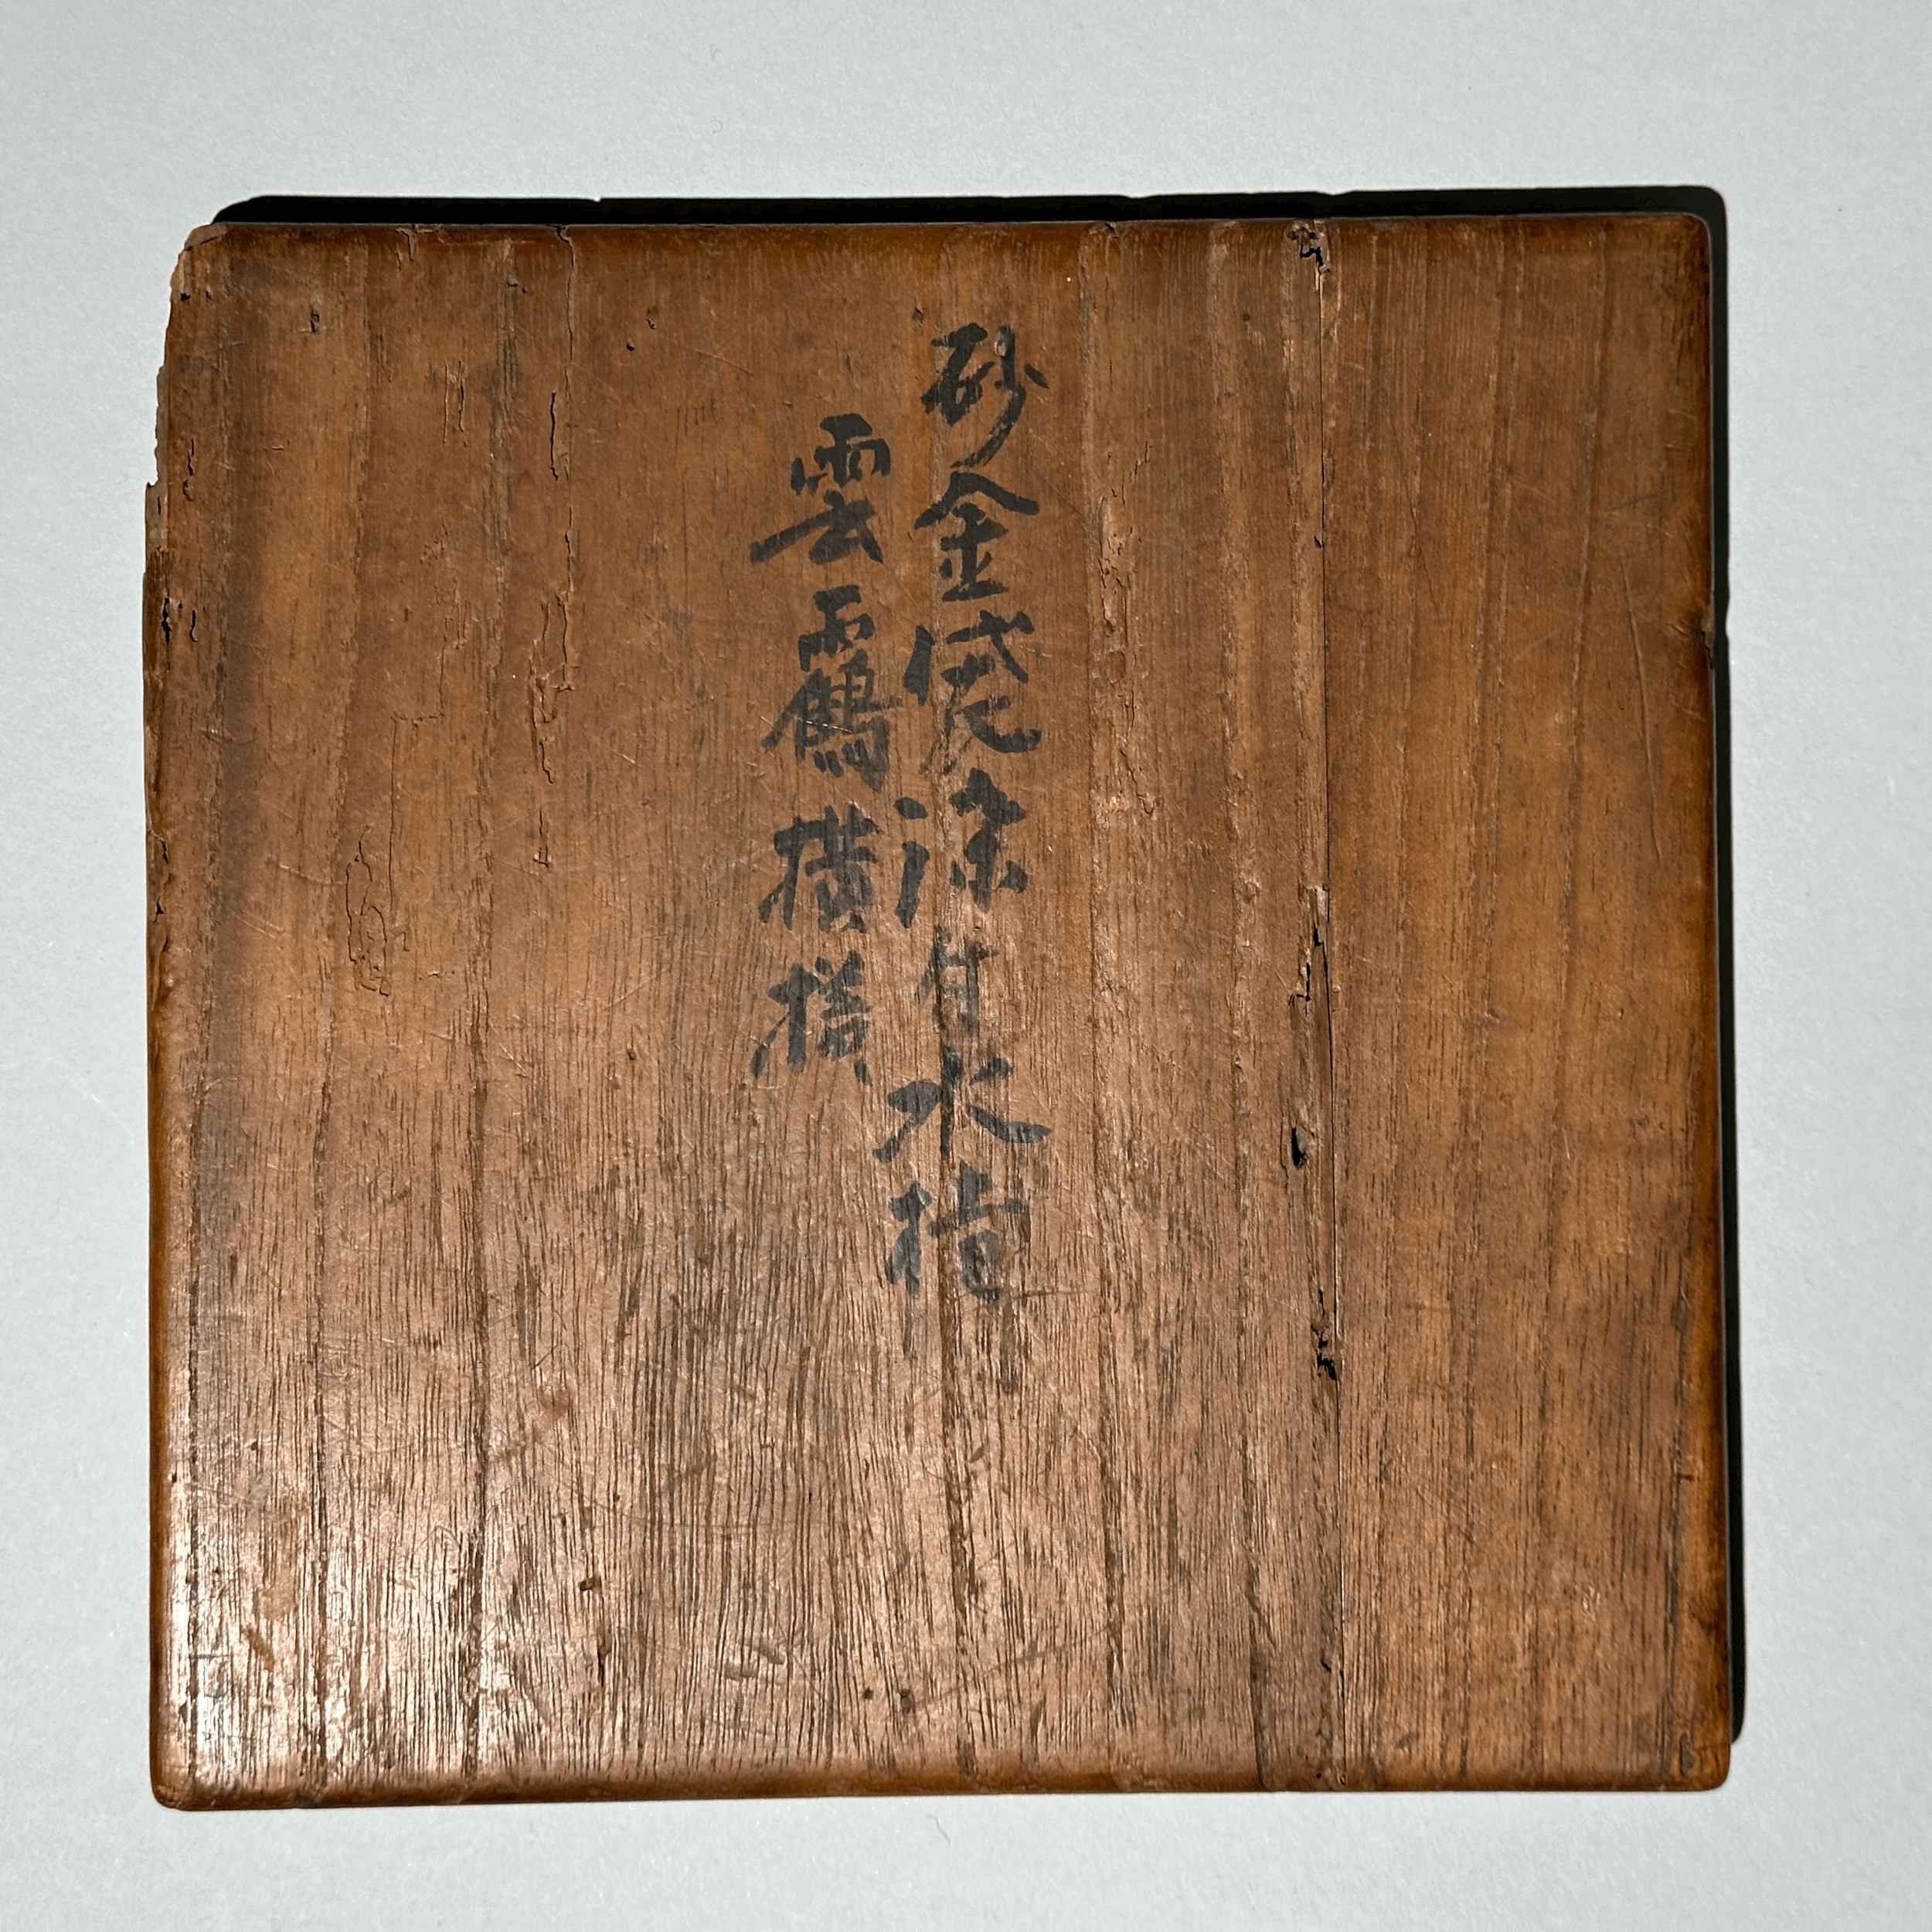 砂金袋染付水指
雲靏模様